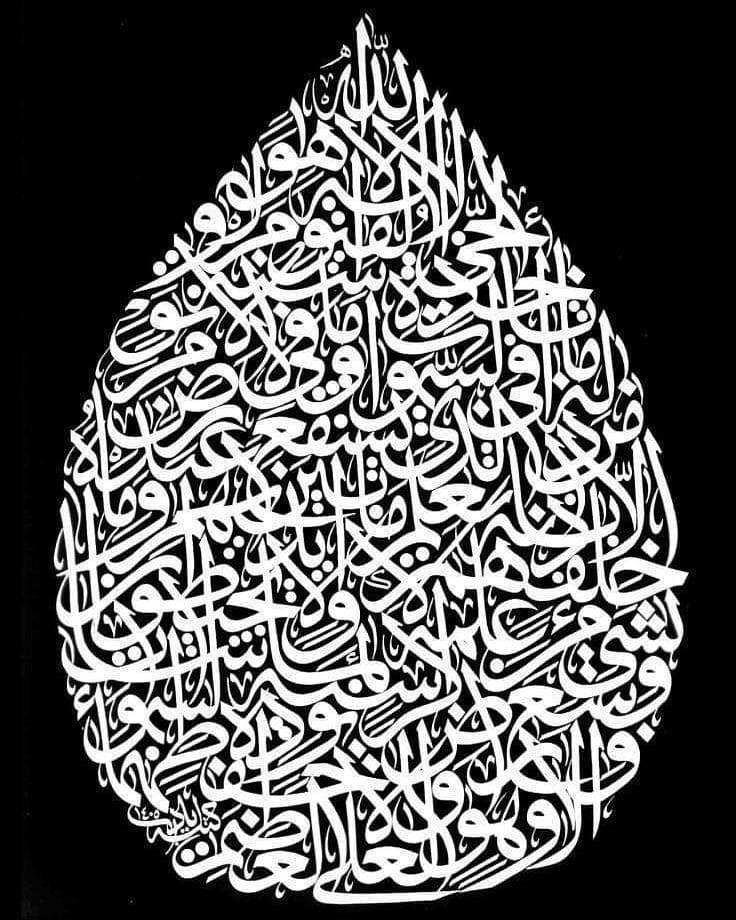 الله لا إله إلا هو
الحي القيوم لا
تأخذه سنة ولا نوم
له ما في السموات وما في الأرض
من ذا الذي يشفع عنده
إلا بإذنه يعلم ما بين أيديهم وما
خلفهم ولا يحيطون
بشيء من علمه إلا بما شاء
وسع كرسيه السموات
والأرض ولا يؤده حفظهما
وهو العلي العظيم